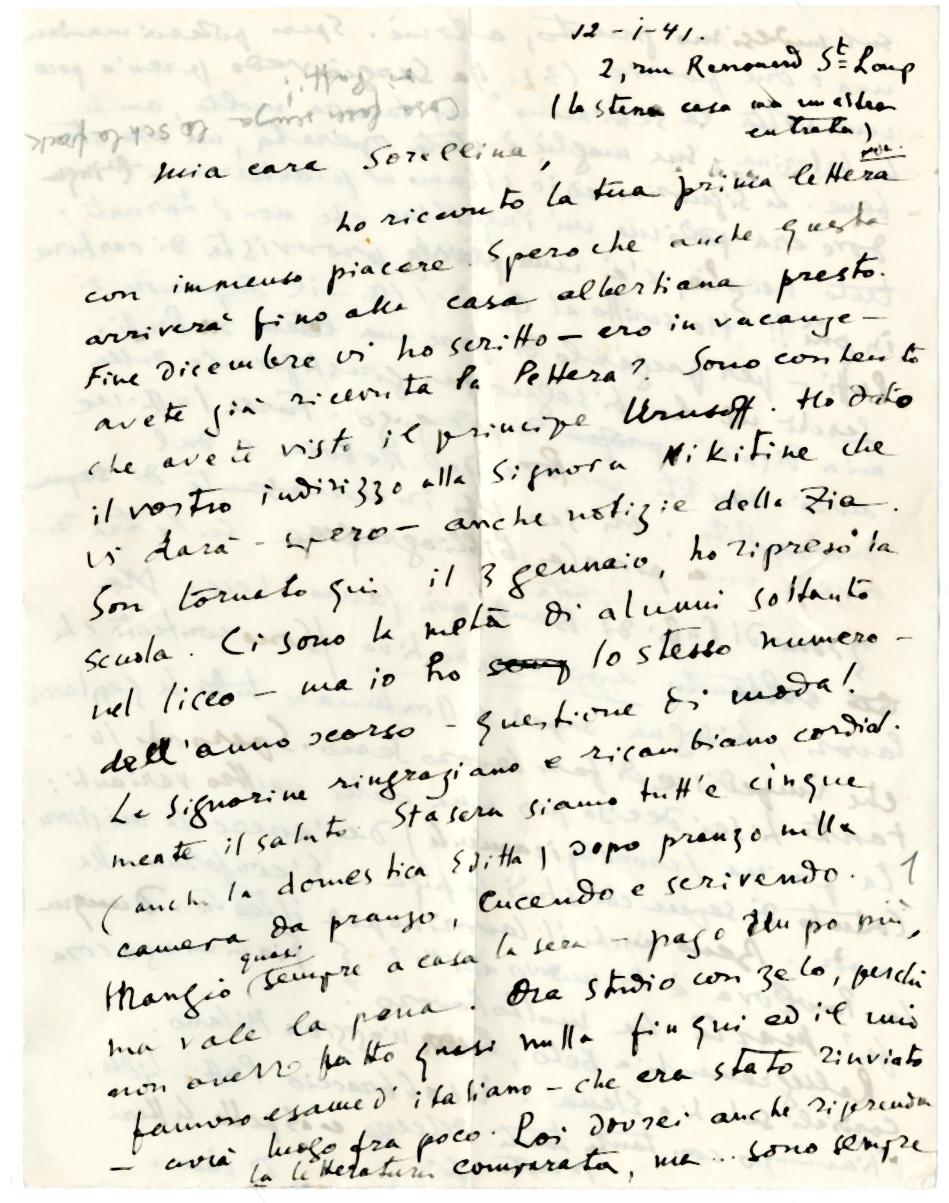 12-1-41.
2, rue St Loup
(la stessa casa ma un'altra
entrata)
mia cara Sorellina,
ho ricevuto la tua prima lettera
con immenso piacere. Spero che anche questa
arriverà fino alla casa albertiana presto.
Fine Dicembre vi ho scritto – ero in vacanze –
avete già ricevuta la lettera? Sono contento
che avete visto il principe Urusoff. Ho dato
il vostro indirizzo alla Signora Nikitine che
vi darà – spero – anche notizie della Zia.
Son tornato qui il 3 gennaio, ho ripreso la
scuola. Ci sono la metà di alunni soltanto
nel liceo – ma io ho lo stesso numero –
dell'anno scorso – questione di moda!
Le Signorine ringraziano e ricambiano cordial-
mente il saluto. Stasera siamo tutt'e cinque
(anche la domestica Editta) dopo pranzo nella
camera da pranzo, cucendo e scrivendo.
1
Mangio quasi sempre a casa la sera – pago un po più,
ma vale la pena. Ora studio con zelo, perchè
non avevo fatto quasi nulla fin qui ed il mio
famoso esame d'italiano – che era stato rinviato
– avrà luogo fra poco. Poi dovrei anche riprender
la letteratura comparata, ma... sono sempre